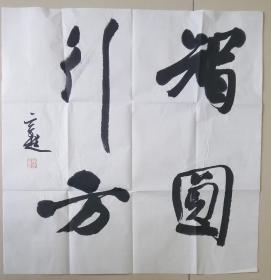 智圓
行方